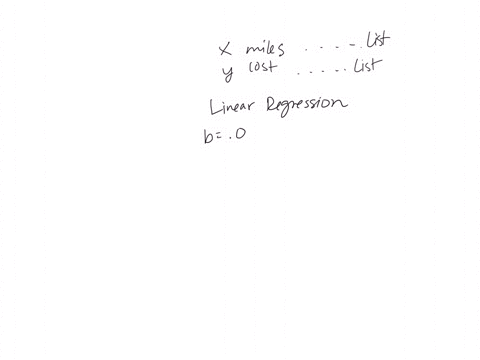 x miles ..... List
y cost ..... List
Linear Regression
b = .0